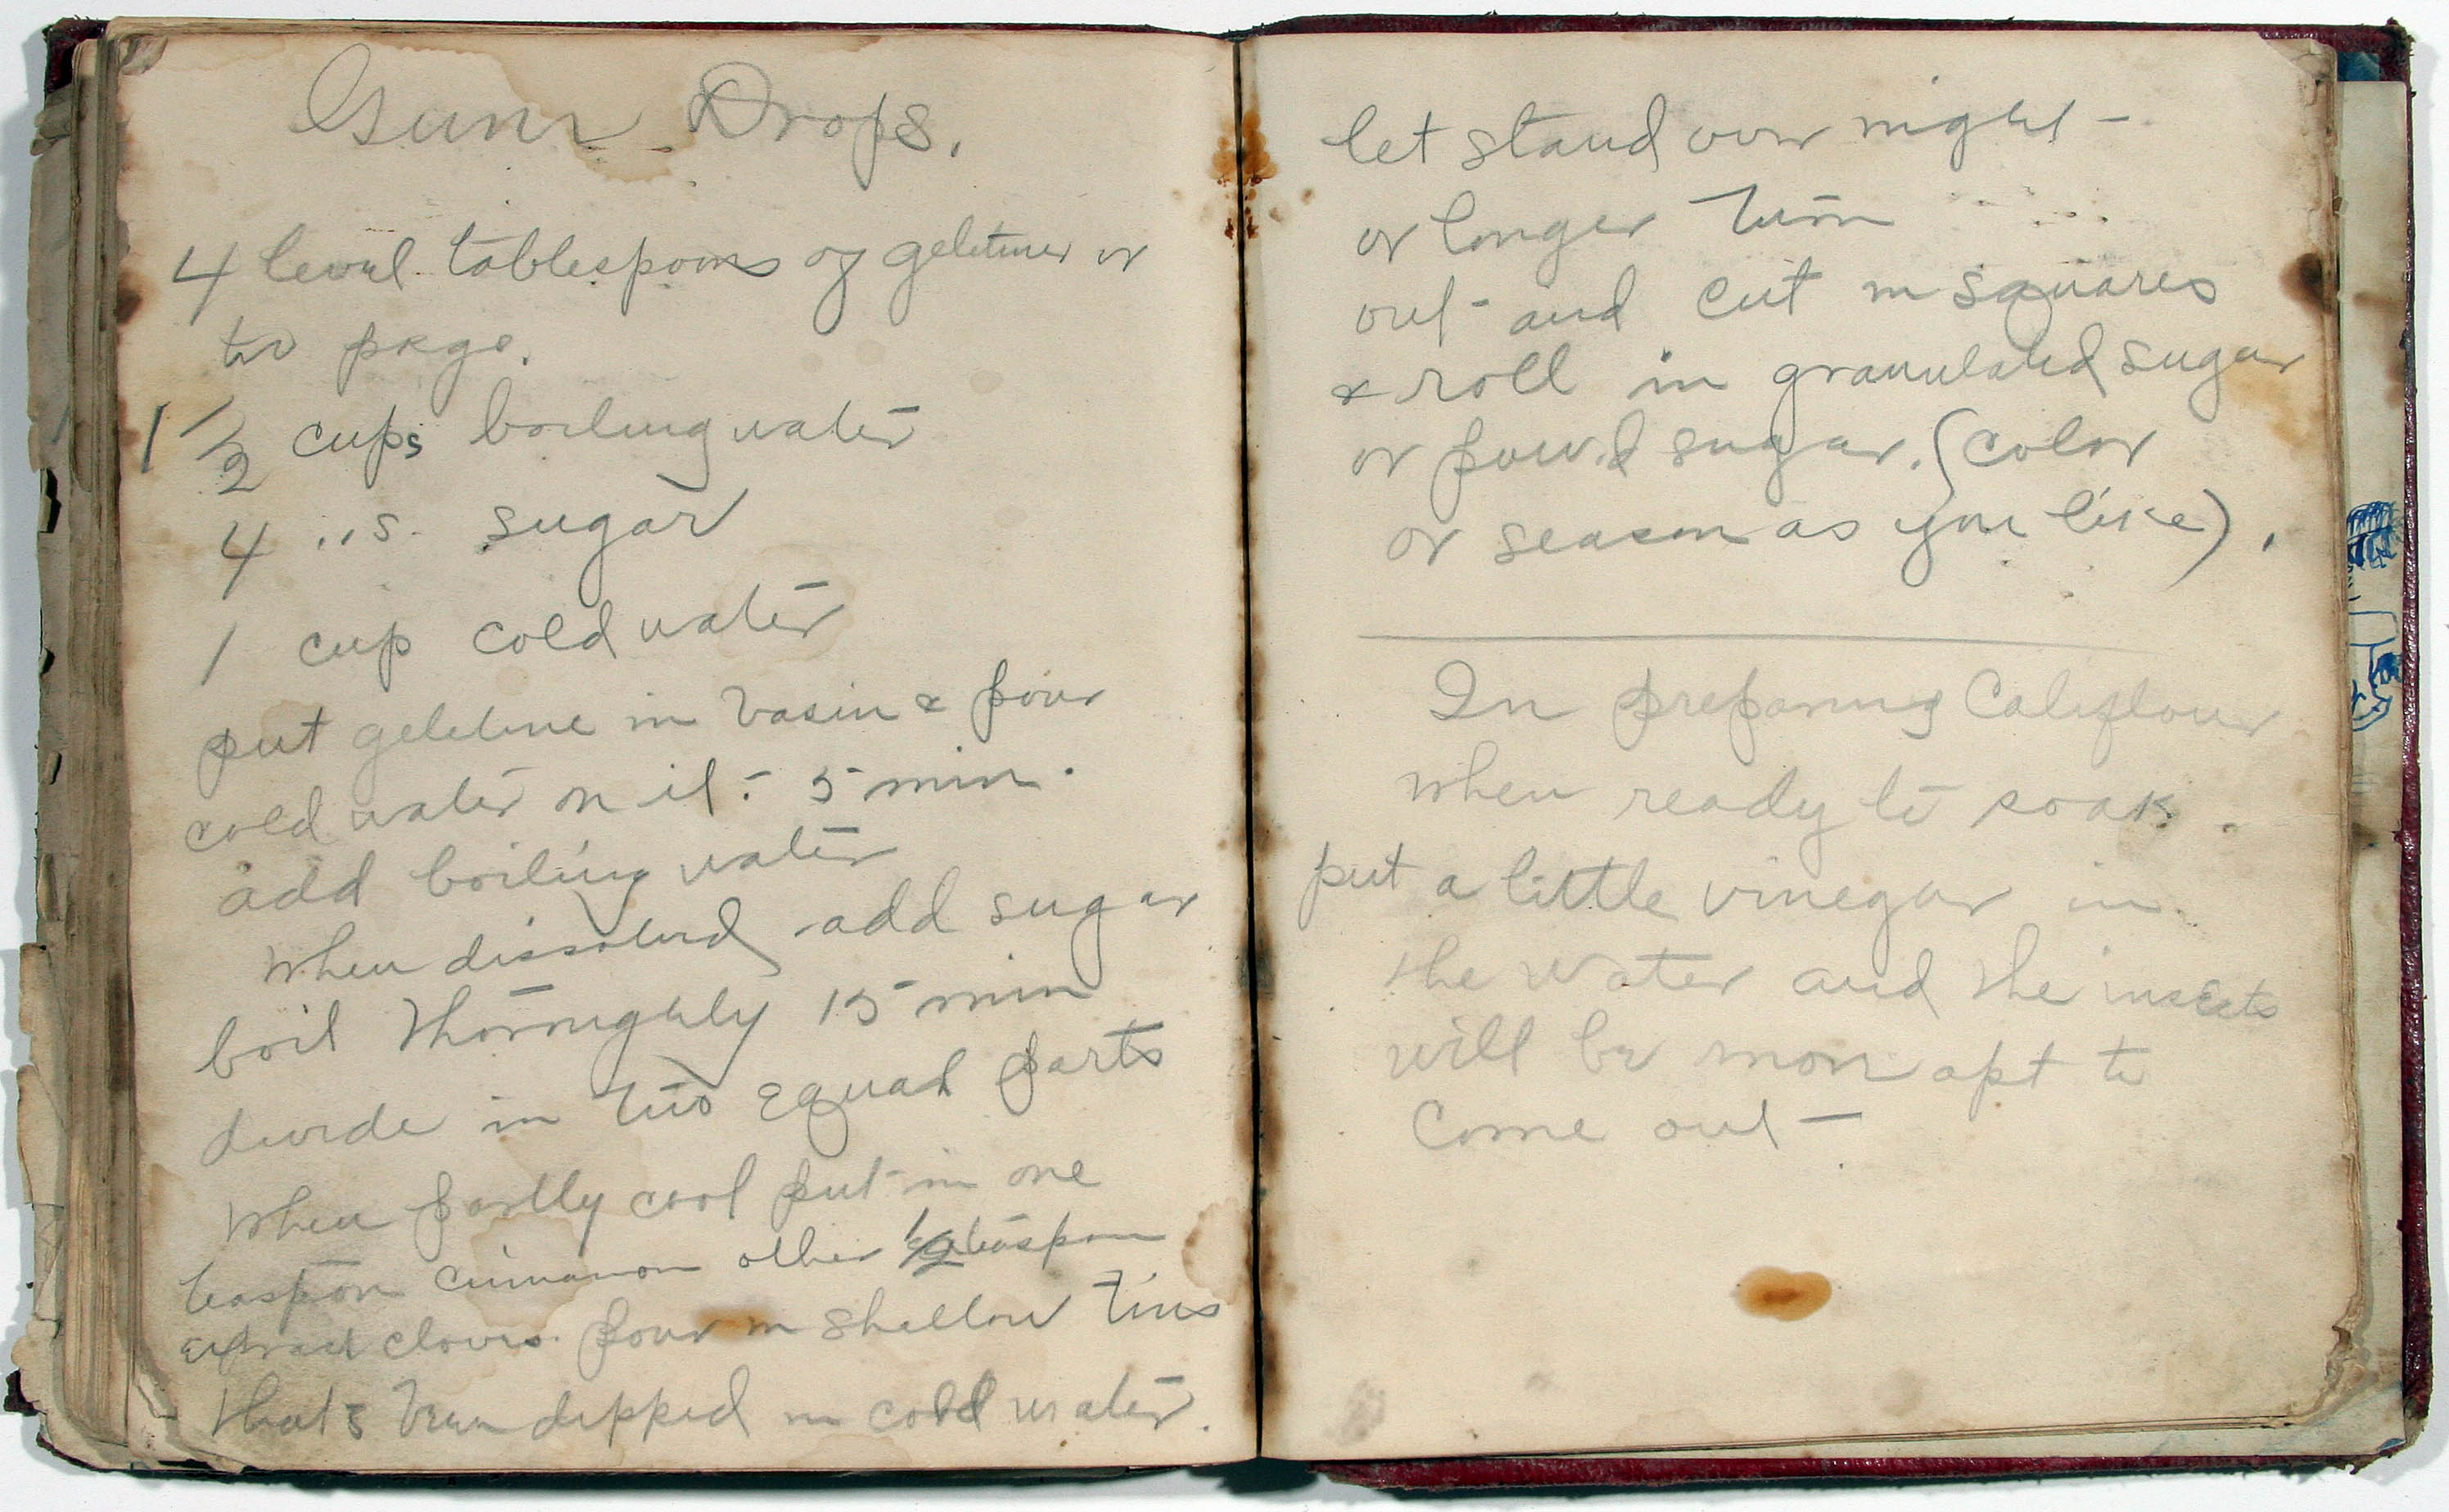 Gum Drops.
4 level tablespoons of geletine or
two pkge.
1 1/2 cups boiling water
4 ,,s. sugar
1 cup cold water
put geletine in basin & pour
cold water on it - 5 min.
add boiling water
when dissolved add sugar
boil thoroughly 15 min
divide in two equal parts
when partly cool put in one
teaspoon cinnamon other 1/2 teaspoon
extract cloves. pour in shallow tins
that's been dipped in cold water.
let stand over night -
or longer turn
out and cut in squares
& roll in granulated sugar
or powd sugar. (color
or season as you like).
In preparing Califlour
when ready to soak.
put a little vinegar in
the water and the insects
will be more apt to
come out -